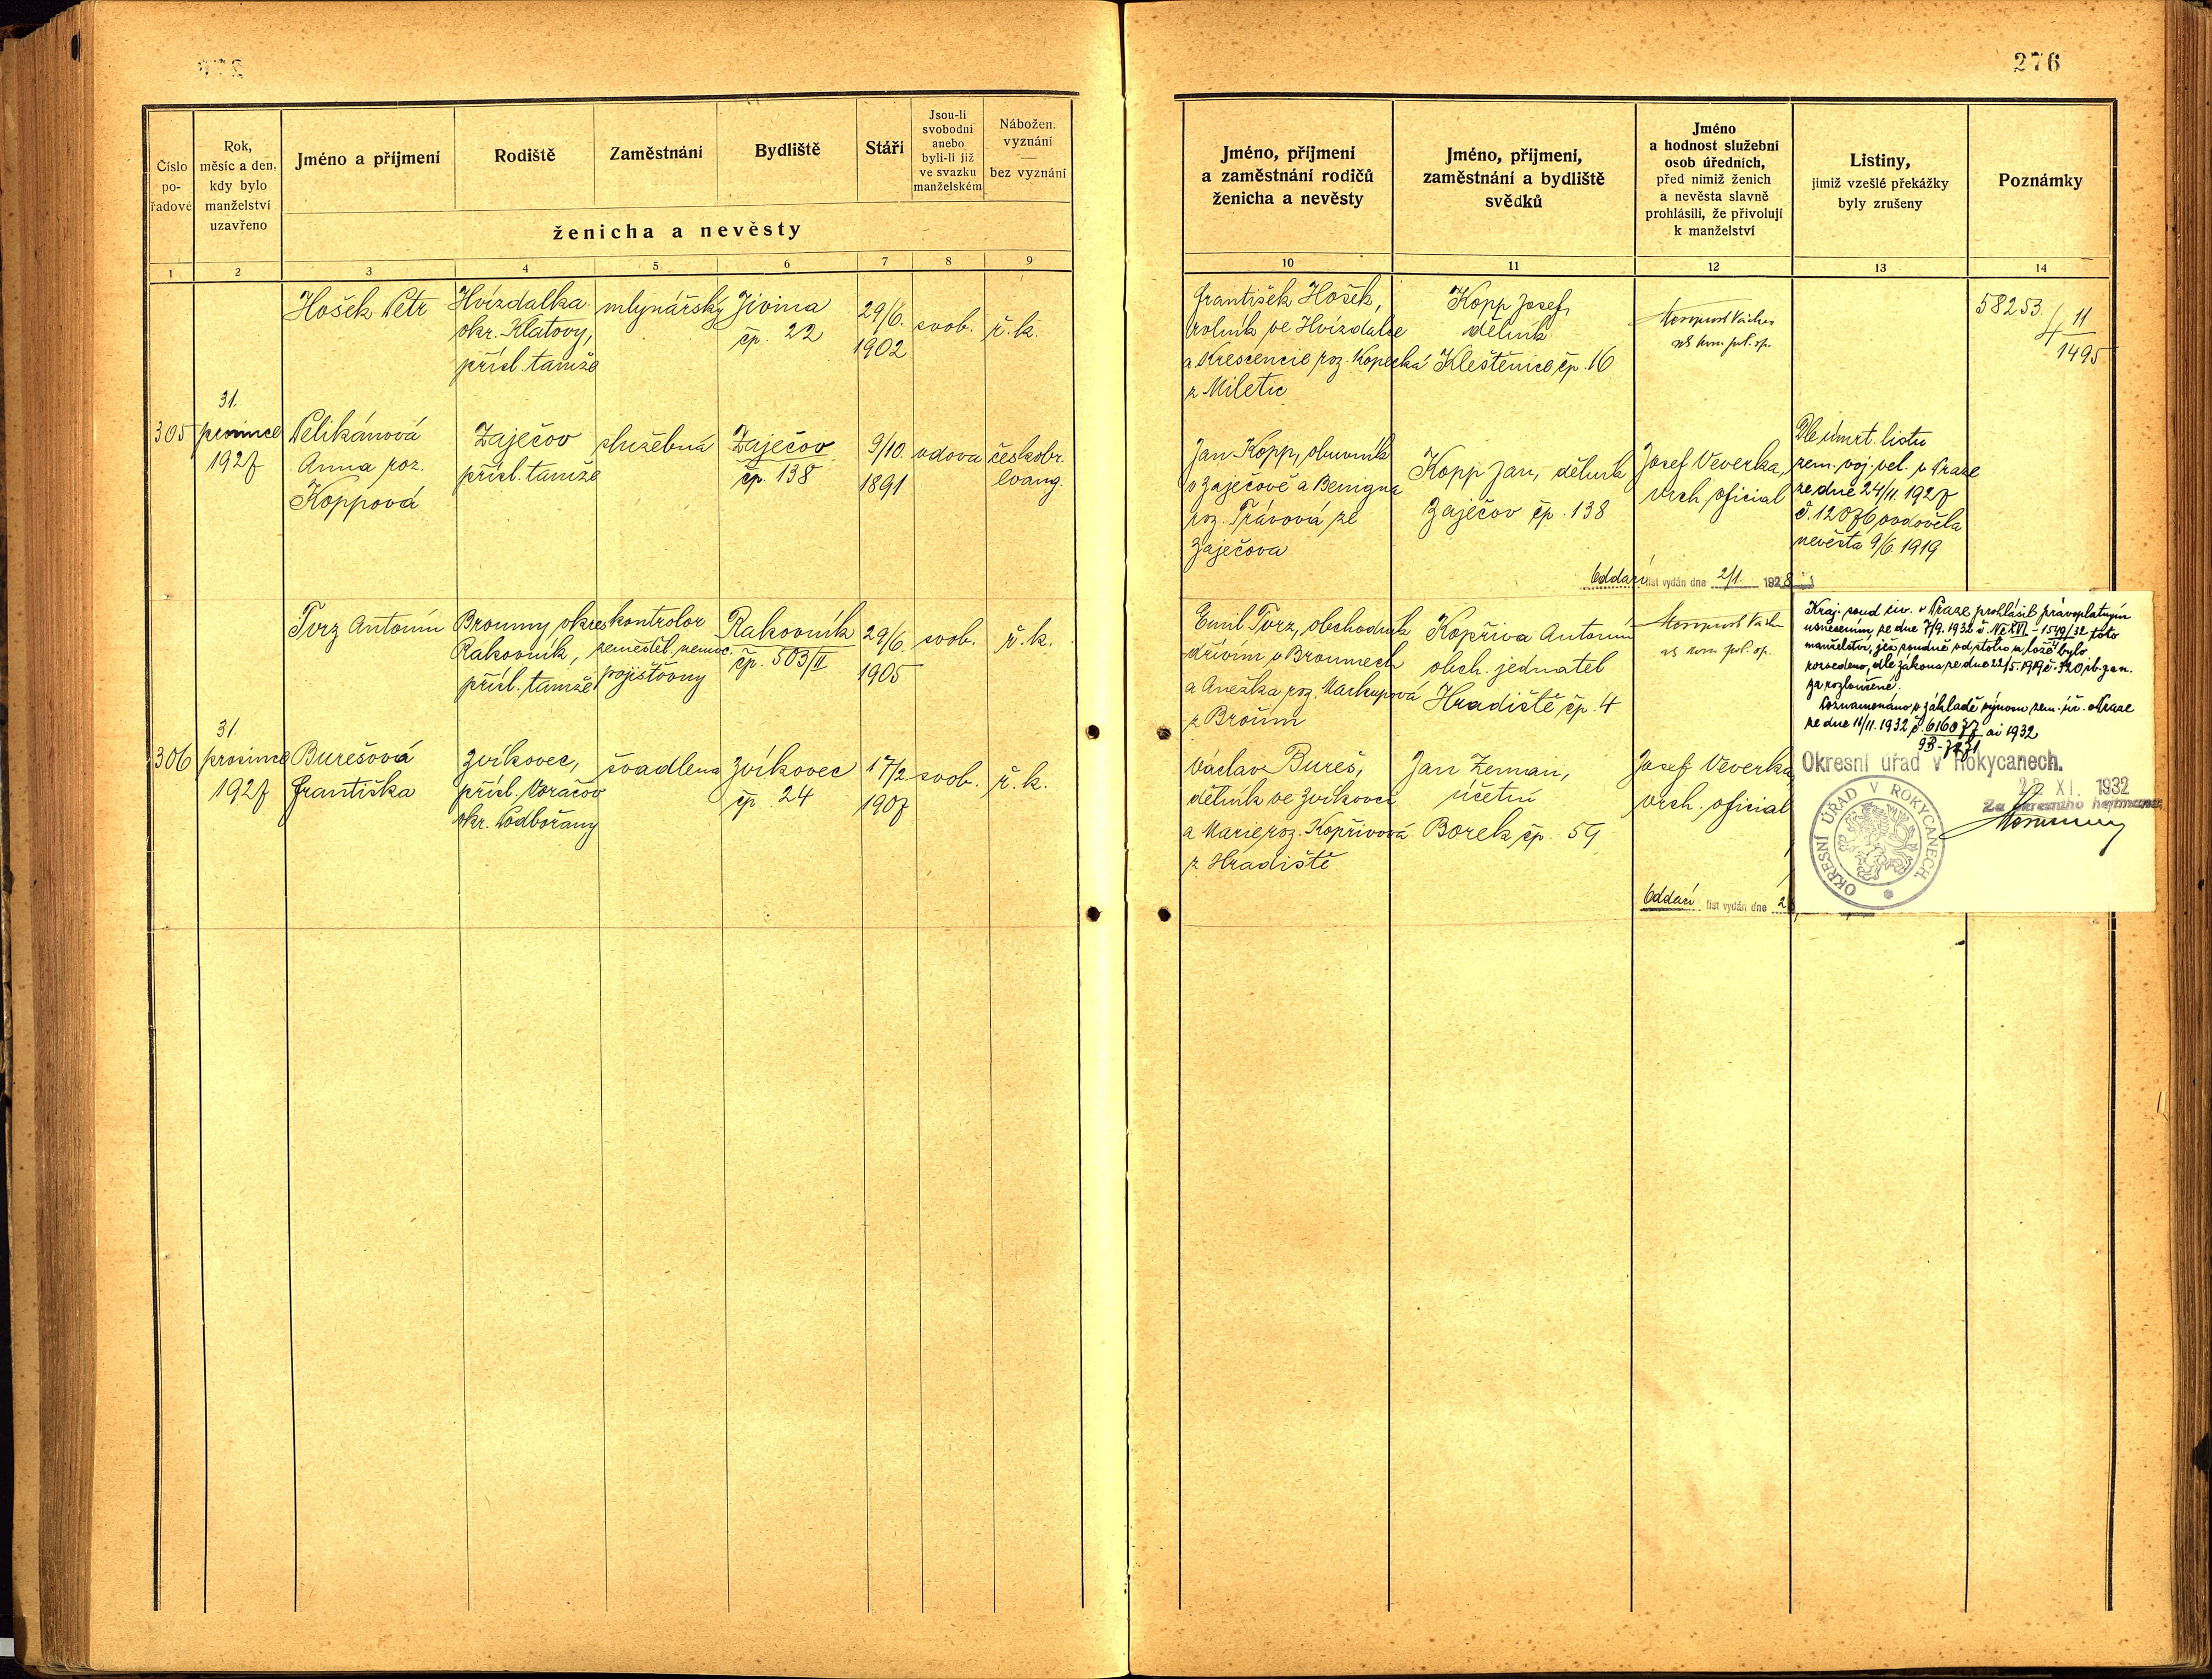 276
Číslo po- řadové
Rok, měsíc a den, kdy bylo manželství uzavřeno
Jméno a příjmení
Rodiště
Zaměstnání
Bydliště
Stáří
Jsou-li svobodní anebo byli-li již ve svazku manželském
Nábožen. vyznání — bez vyznání
ženicha a nevěsty
1 2 3 4 5 6 7 8 9
Jméno, příjmení a zaměstnání rodičů ženicha a nevěsty
Jméno, příjmení, zaměstnání a bydliště svědků
Jméno a hodnost služební osob úředních, před nimiž ženich a nevěsta slavně prohlásili, že přivolují k manželství
Listiny, jimiž vzešlé překážky byly zrušeny
Poznámky
10 11 12 13 14
305
31.
prosince
1927
Hošek Petr
Hvízdalka
okr. Klatovy,
přísl. tamže
mlynářský
Jivina
čp. 22
29/6.
1902
svob.
ř. k.
František Hošek,
rolník ve Hvízdalce
a Krescencie roz. Kopecká
z Miletic
Kopp Josef,
dělník
Kleštěnice čp. 16
58253
11
1495
Pelikánová
Anna roz.
Koppová
Zaječov
přísl. tamže
služebná
Zaječov
čp. 138
9/10.
1891
vdova
českobr.
evang.
Jan Kopp, obuvník
v Zaječově a Benigna
roz. Trávová ze
Zaječova
Kopp Jan, dělník
Zaječov čp. 138
Josef Veverka,
vrch. oficial
Dle úmrt. listu
zem. voj. vel. v Praze
ze dne 24/11. 1927
č. 12076 ovdověla
nevěsta 9/6. 1919
Oddací list vydán dne 2/1. 1928
306
31.
prosince
1927
Tvrz Antonín
Broumy okres
Rakovník,
přísl. tamže
kontrolor
zeměděl. nemoc.
pojišťovny
Rakovník
čp. 503/II
29/6.
1905
svob.
ř. k.
Emil Tvrz, obchodník
dřívím v Broumech
a Anežka roz.
z Broum
Kopřiva Antonín
obch. jednatel
Hradiště čp. 4
Burešová
Františka
Zvíkovec,
přísl. Voračov
okr. Podbořany
švadlena
Zvíkovec
čp. 24
17/2.
1907
svob.
ř. k.
Václav Bureš,
dělník ve Zvíkovci
a Marie roz. Kopřivová
z Hradiště
Jan Zeman,
účetní
Borek čp. 59
Josef Veverka
vrch. oficial
Oddací list vydán dne 2
Kraj. soud civ. v Praze prohlásil právoplatným
usnesením ze dne 7/9. 1932 č. Nc XVI - 1549/32 toto
manželství, jež soudně od stolu a lože bylo
rozvedeno, dle zákona ze dne 22/5. 1919 č. 320 sb. z. a n.
za rozloučené.
Poznamenáno na základě výnosu zem. úř. v Praze
ze dne 11/11. 1932 č. 616077 ai 1932
Okresní úřad v Rokycanech.
28 XI. 1932
Za okresního hejtmana
OKRESNÍ ÚŘAD V ROKYCANECH